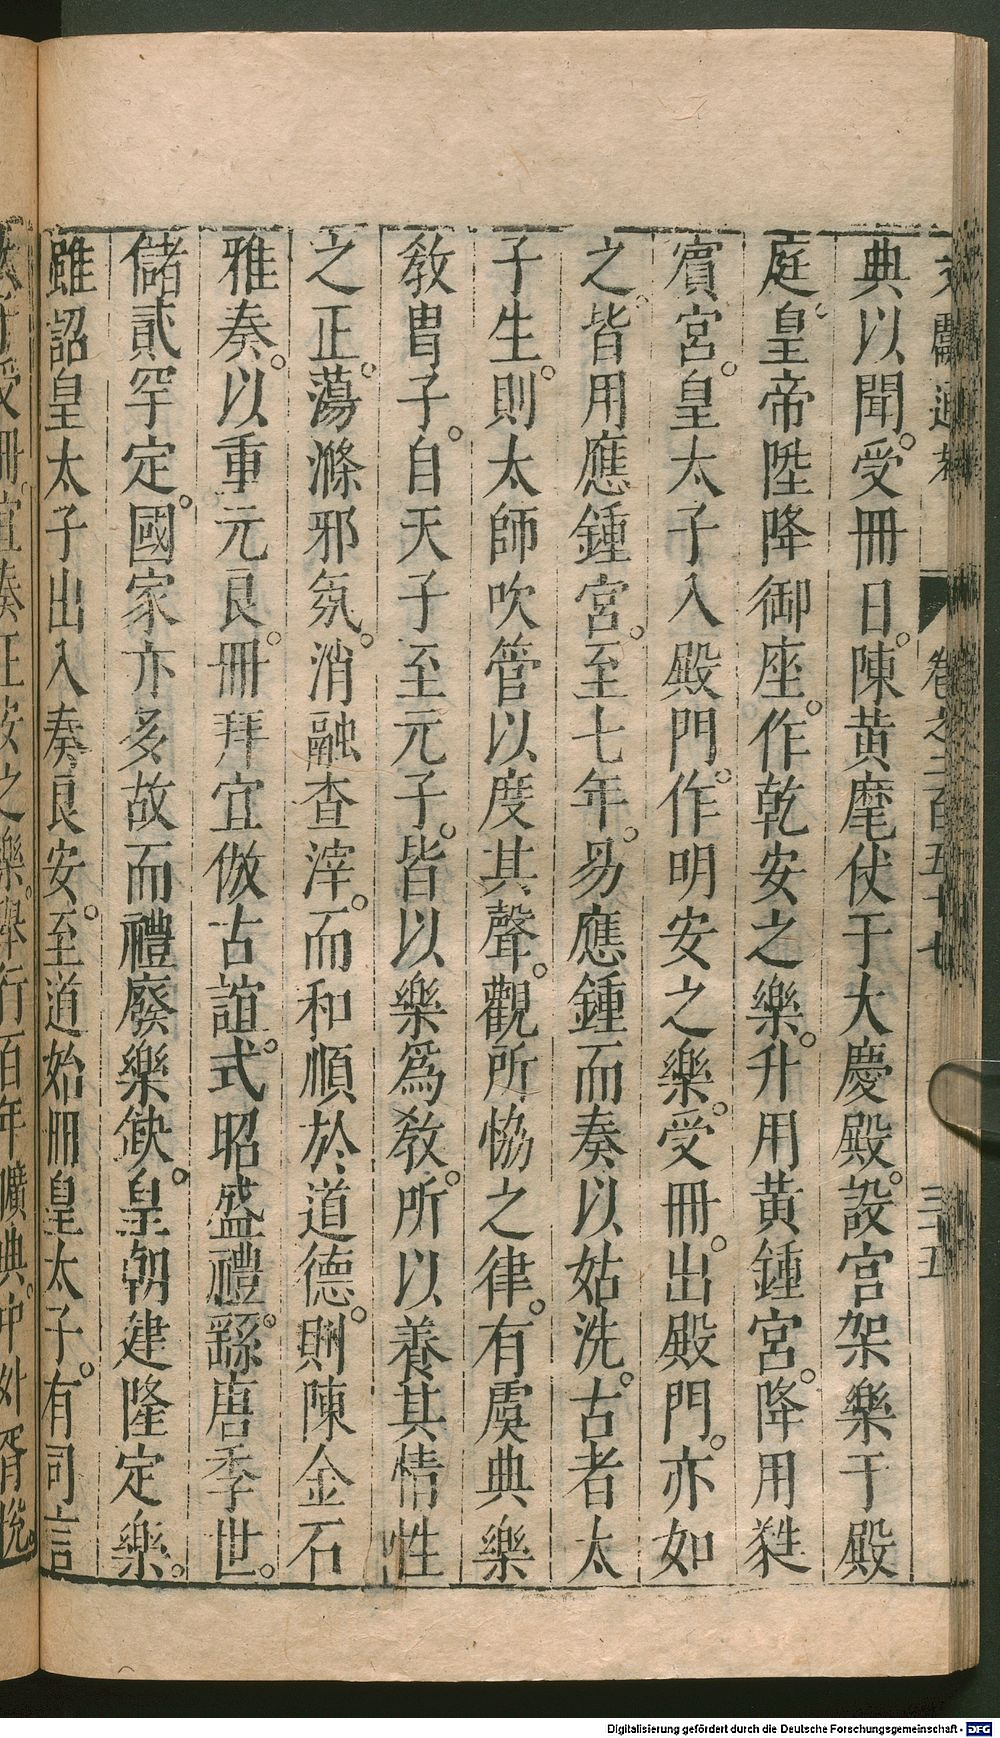 文獻通考 卷之二百五十七 三十五
典以聞。受冊日。陳黃麾仗于大慶殿。設宮架樂于殿
庭。皇帝陞降御座。作乾安之樂。升用黃鍾宮。降用蕤
賓宮。皇太子入殿門。作明安之樂。受冊。出殿門。亦如
之。皆用應鍾宮。至七年。易應鍾而奏以姑洗。古者太
子生。則太師吹管以度其聲。觀所恊之律。有虞典樂
敎冑子。自天子至元子。皆以樂爲敎。所以養其情性
之正。蕩滌邪氛。消融查滓。而和順於道德。則陳金石
雅奏。以重元良。冊拜宜倣古誼。式昭盛禮。繇唐季世。
儲貳罕定。國家亦多故而禮廢樂缺。皇朝建隆定樂。
雖詔皇太子出入奏良安。至道始冊皇太子。有司言
太子受冊。宜奏正安之樂。舉行百年曠典。中外胥悅。
Digitalisierung gefördert durch die Deutsche Forschungsgemeinschaft - DFG